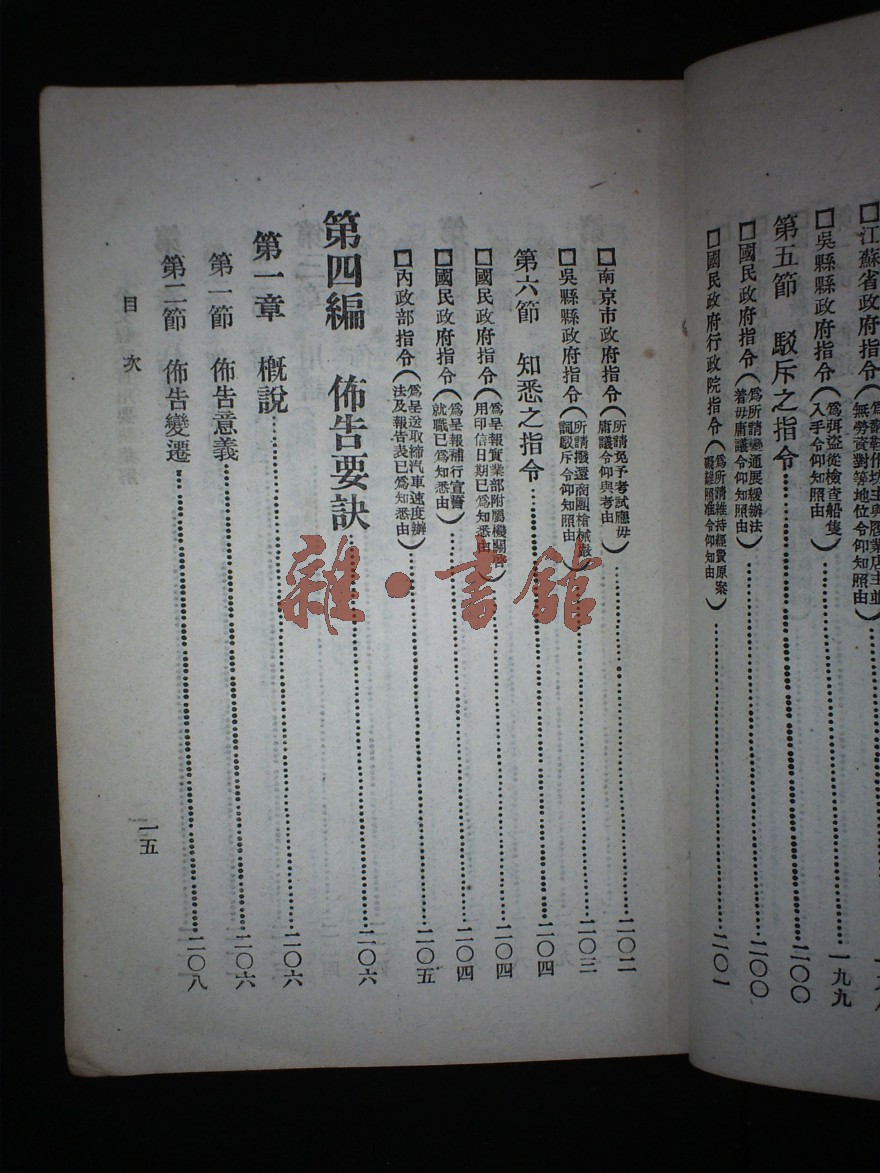 □江蘇省政府指令(爲鄰鞋作坊主與履業店主並無勞資對等地位令仰知照由)
□吳縣縣政府指令(爲弭盜從檢查船隻入手令仰知照由)……一九九
第五節 駁斥之指令……二〇〇
□國民政府指令(爲所請變通展緩辦法着毋庸議令仰知照由)……二〇〇
□國民政府行政院指令(爲所請維持經費原案礙難照准令仰知由)……二〇一
□南京市政府指令(所請免予考試應毋庸議令仰與考由)……二〇二
□吳縣縣政府指令(所請撥還商團槍械嚴詞駁斥令仰知照由)……二〇三
第六節 知悉之指令……二〇四
□國民政府指令(爲呈報實業部附屬機關啓用印信日期已爲知悉由)……二〇四
□國民政府指令(爲呈報補行宣誓就職已爲知悉由)……二〇四
□內政部指令(爲呈送取締汽車速度辦法及報告表已爲知悉由)……二〇五
第四編 佈告要訣……二〇六
第一章 概說……二〇六
第一節 佈告意義……二〇六
第二節 佈告變遷……二〇八
目次
一五
雜·書館